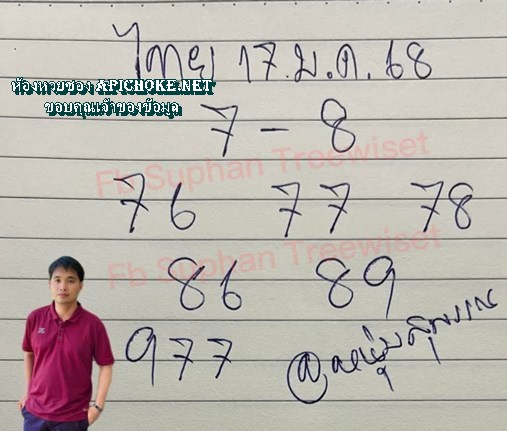 ไทย 17.ม.ค.68
ห้องหวยซอง APICHOKE.NET
ขอบคุณเจ้าของข้อมูล
7 - 8
Fb Suphan Treewiset
76 77 78
Fb Suphan Treewiset
86 89
977 @หนุ่มสุพรรณ